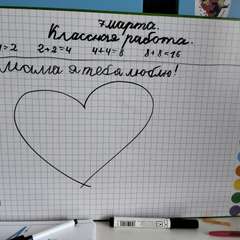 7 марта.
Классная работа.
1=2 2+2=4 4+4=8 8+8=16
Мама я тебя люблю!